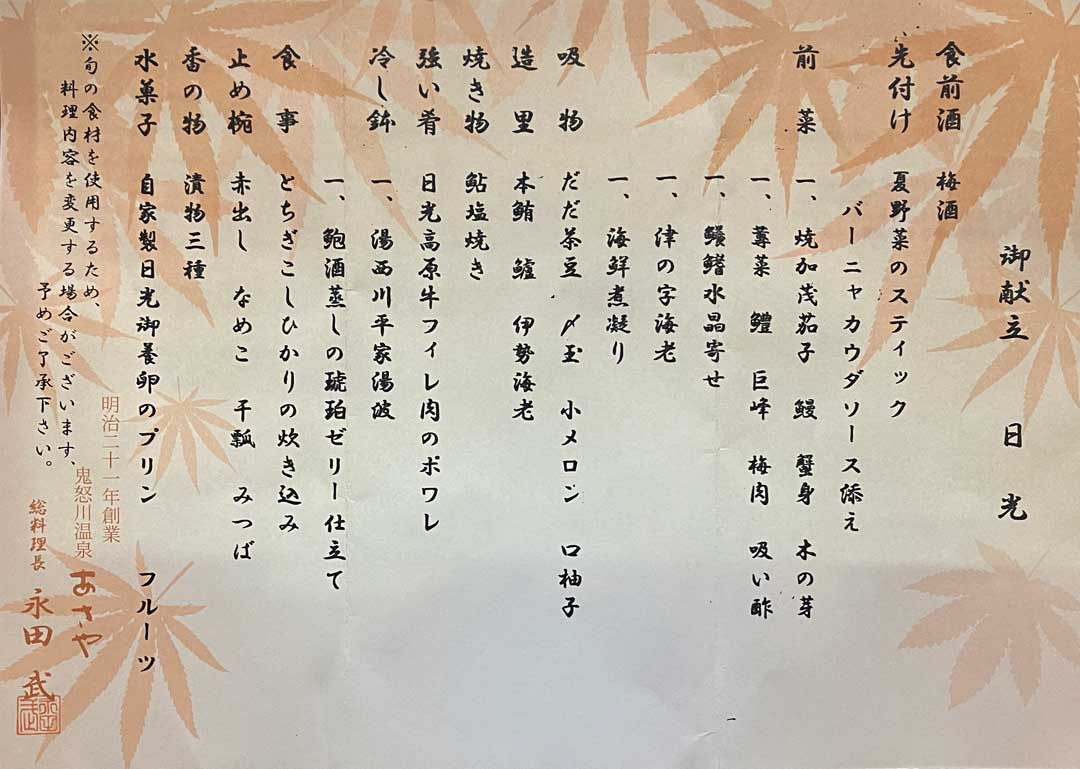 御献立 日光
食前酒 梅酒
先付け 夏野菜のスティック
バーニャカウダソース添え
前菜 一、焼加茂茄子 鰻 蟹身 木の芽
一、蓴菜 鱧 巨峰 梅肉 吸い酢
一、鰻鰭水晶寄せ
一、津の字海老
一、海鮮煮凝り
吸物 だだ茶豆 〆玉 小メロン 口柚子
造里 本鮪 鱸 伊勢海老
焼き物 鮎塩焼き
強い肴 日光高原牛フィレ肉のポワレ
冷し鉢 一、湯西川平家湯波
一、鮑酒蒸しの琥珀ゼリー仕立て
食事 とちぎこしひかりの炊き込み
止め椀 赤出し なめこ 干瓢 みつば
香の物 漬物三種
水菓子 自家製日光御養卵のプリン フルーツ
※旬の食材を使用するため、
料理内容を変更する場合がございます、
予めご了承下さい。
明治二十一年創業
鬼怒川温泉 あさや
総料理長 永田 武